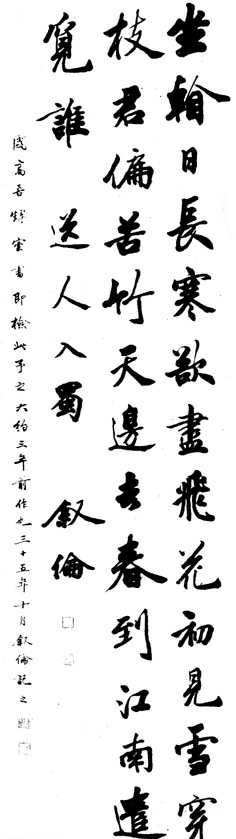 坐輪日長寒欲盡飛花初見雪穿
枝君偏苦竹天邊去春到江南遣
覓誰 送人入蜀 叙倫
高吾 書即檢此予之大約三年前作也三十五年十月叙倫記之